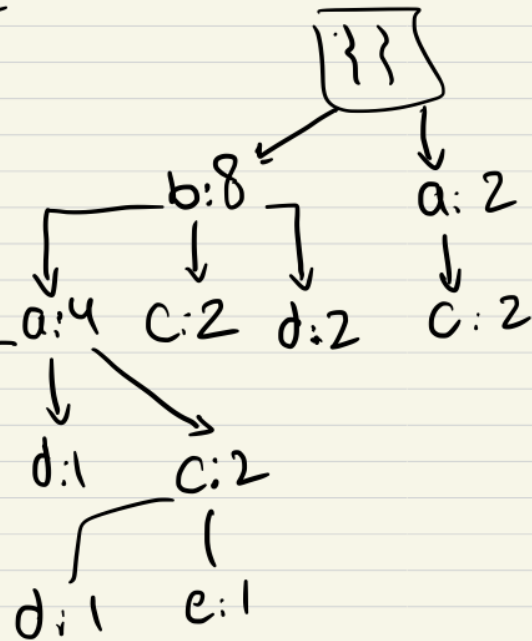 {}
b:8 a:2
a:4 c:2 d:2 c:2
d:1 c:2
d:1 e:1